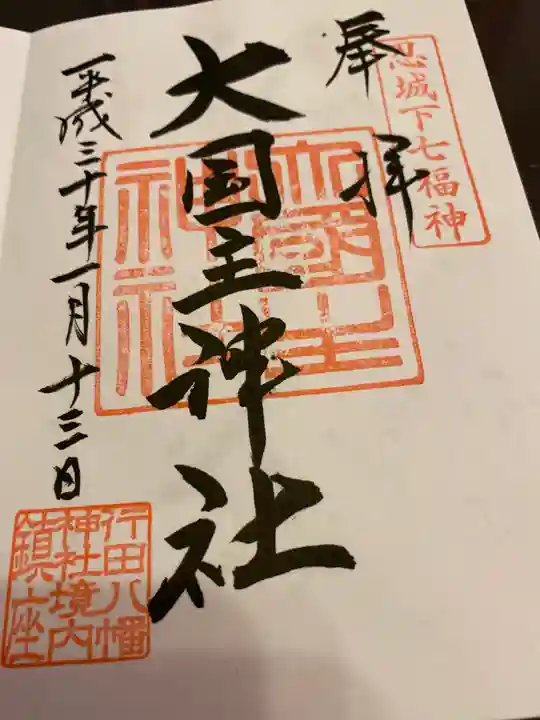 忍城下七福神
奉拝
大国主神社
大國主
神社
平成三十年一月十三日
行田八幡
神社境内
鎮座